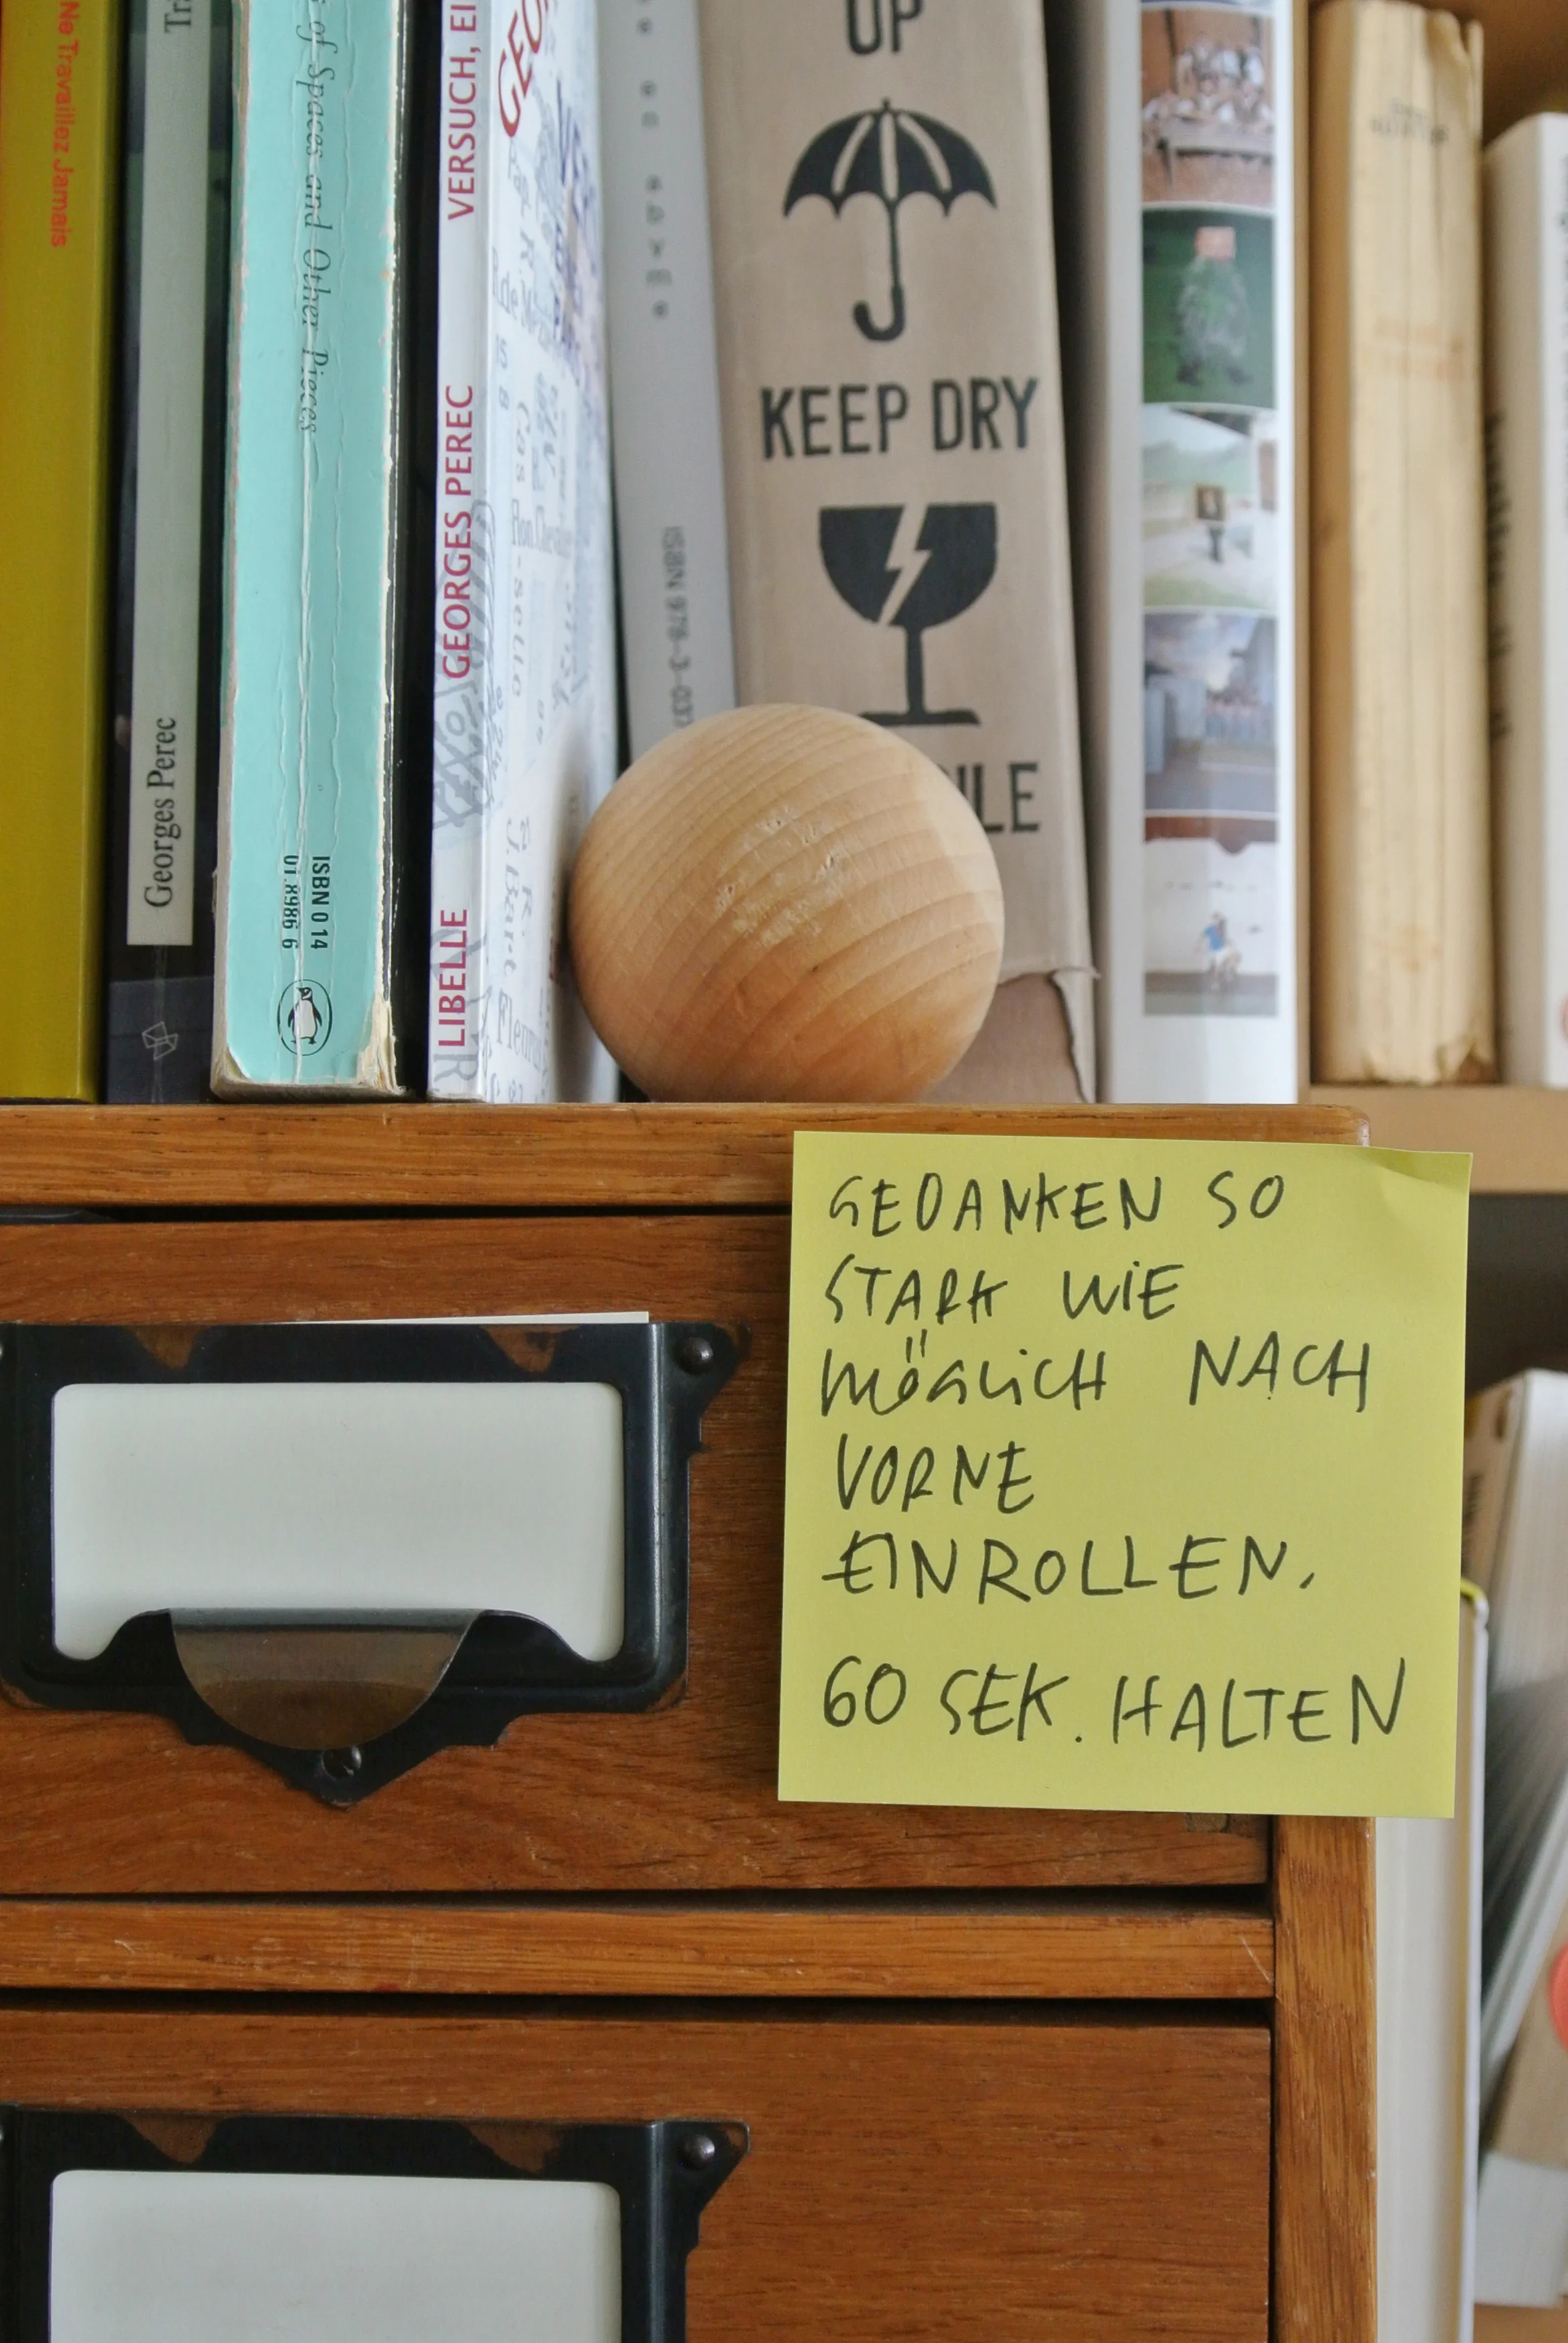 Ne Travaillez Jamais
Georges Perec
of Spaces and Other Pieces
ISBN 0 14
01.8986 6
VERSUCH, EI
GEORGES PEREC
LIBELLE
GEO
en abyme
ISBN 978-3-037
UP
KEEP DRY
ILE
GEDANKEN SO
STARK WIE
MÖGLICH NACH
VORNE
EINROLLEN.
60 SEK. HALTEN